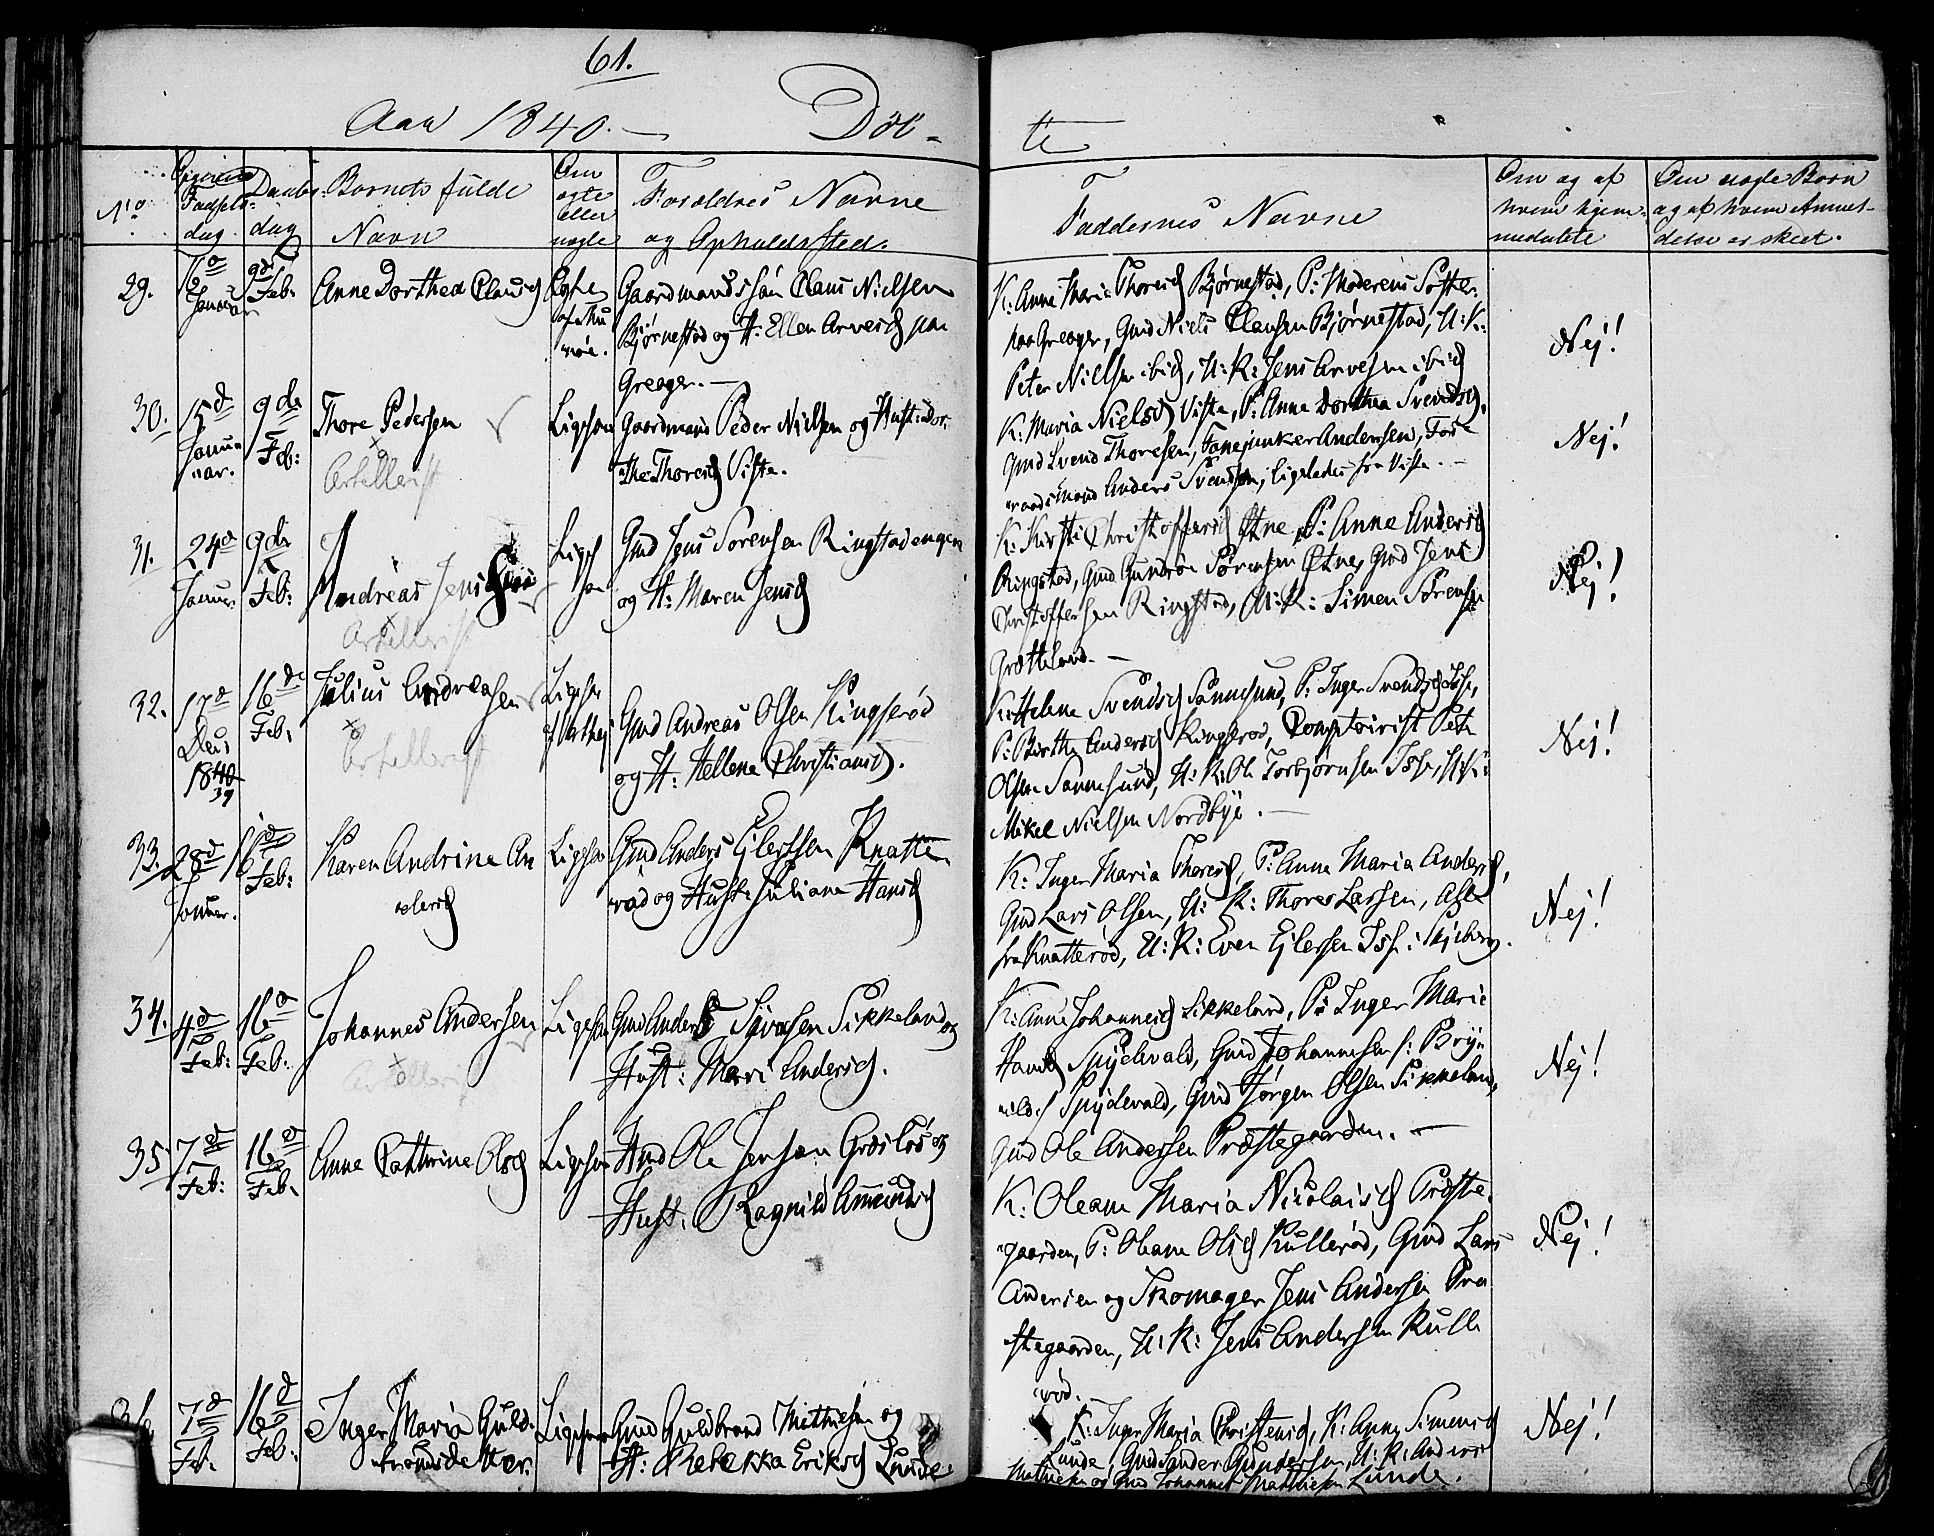 61.
Aar 1840. — Döb-
te
No
Fødsels-
dag
Daabs-
dag
Barnets fulde
Navn
Om
ægte
eller
uægte
Forældres Navne
og Opholdssted.
Faddernes Navne
Om og af
hvem hjem-
medøbte
Om uægte Børn
og af hvem Anmel-
delse er skeet.
29.
16d
Januar
9d
Feb:
Anne Dorthea Clausd
Ægte
Gaardmandssøn Claus Nielsen
Bjørnestad og H: Ellen Arvesd paa
Greager. —
K: Anne Marie Thoresd Bjørnestad, P: Moderens Søster
paa Greager, Gmd Niels Clausen Bjørnestad, U: K:
Peter Nielsen ibid, U: K: Jens Arvesen ibid
Nej!
30.
15d
Janu-
ar.
9de
Feb:
Thore Pedersen
Artellerist
Ligesaa
Gaardmand Peder Nielsen og Hust: Dor-
the Thoresd Viste.
K: Maria Nielsd Viste, P: Anne Dorthea Svendsd,
Gmd Svend Thoresen, Fanejunker Andersen, For-
mand Anders Svendsen, ligeledes fra Viste. —
Nej!
31.
24d
Januar.
9de
Feb:
Andreas Jens
Artellerist
Ligesaa
Gmd Jens Sørensen Ringstadengen
og H: Maren Jensd
K: Kirsti Christoffersd Etne, P: Anne Andersd
Ringstad, Gmd Gunder Sørensen Etne, Gmd Jens
Christoffersen Ringstad, U: K: Simen Sørensen
Grøtteland. —
Nej!
32.
17d
Des
1840
39
16de
Feb:
Julius Andreasen
Artellerist
Ligesaa
Gmd Andreas Olsen Kingserød
og H: Hellene Christiansd.
K: Helene Svendsd Sannesund, P: Inger Svendsd Ise,
P: Birthe Andersd Kingserød, Comptoirist Peter
Olsen Sannesund, U: K: Ole Torbjørnsen Ise, U: K:
Mikel Nielsen Nordbye. —
Nej!
33.
28d
Januar.
16d
Feb:
Karen Andrine An
dersd
Ligesaa
Gmd Anders Ejlertsen Knatte-
rød og Hust: Juliane Hansd
K: Inger Maria Thoresd, P: Anne Maria Andersd,
Gmd Lars Olsen, U: K: Thores Larsen, Alle
fra Knatterød, U: K: Even Ejlersen Ise i Skjeberg.
Nej!
34.
4d
Feb:
16d
Feb.
Johannes Andersen
Artelleri
Ligesaa
Gmd Anders Sivesen Sikkeland og
Hust: Mari Andersd.
K: Anne Johannesd Sikkeland, P: Inger Marie
Hansd Spydevald, Gmd Johannesen
Spydevald, Gmd Jørgen Olsen Sikkeland,
Gmd Ole Andersen Præstegaarden. —
Nej!
35
7d
Feb:
16d
Feb.
Anne Cathrine Olsd
Ligesaa
Hmd Ole Jensen Græslös og
Hust: Ragnild Amundsd
K: Oleane Maria Nicolaisd Præste-
gaarden, P: Oleane Olsd Kullerød, Gmd Lars
Andersen og Skomager Jens Andersen Præ
stegaarden, U: K: Jens Andersen Kulle
rød.
Nej!
36
7d
Feb.
16d
Feb:
Inger Maria Guld-
brandsdatter.
Ligesaa
Gmd Guldbrand Mathiesen og
H: Rebekka Eriksd Lunde
K: Inger Maria Christensd, K: Anne Simensd
Lunde, Gmd Sander Gundersen, U: K: Anders
Mathiesen og Gmd Johannes Mathiesen Lunde.
Nej!